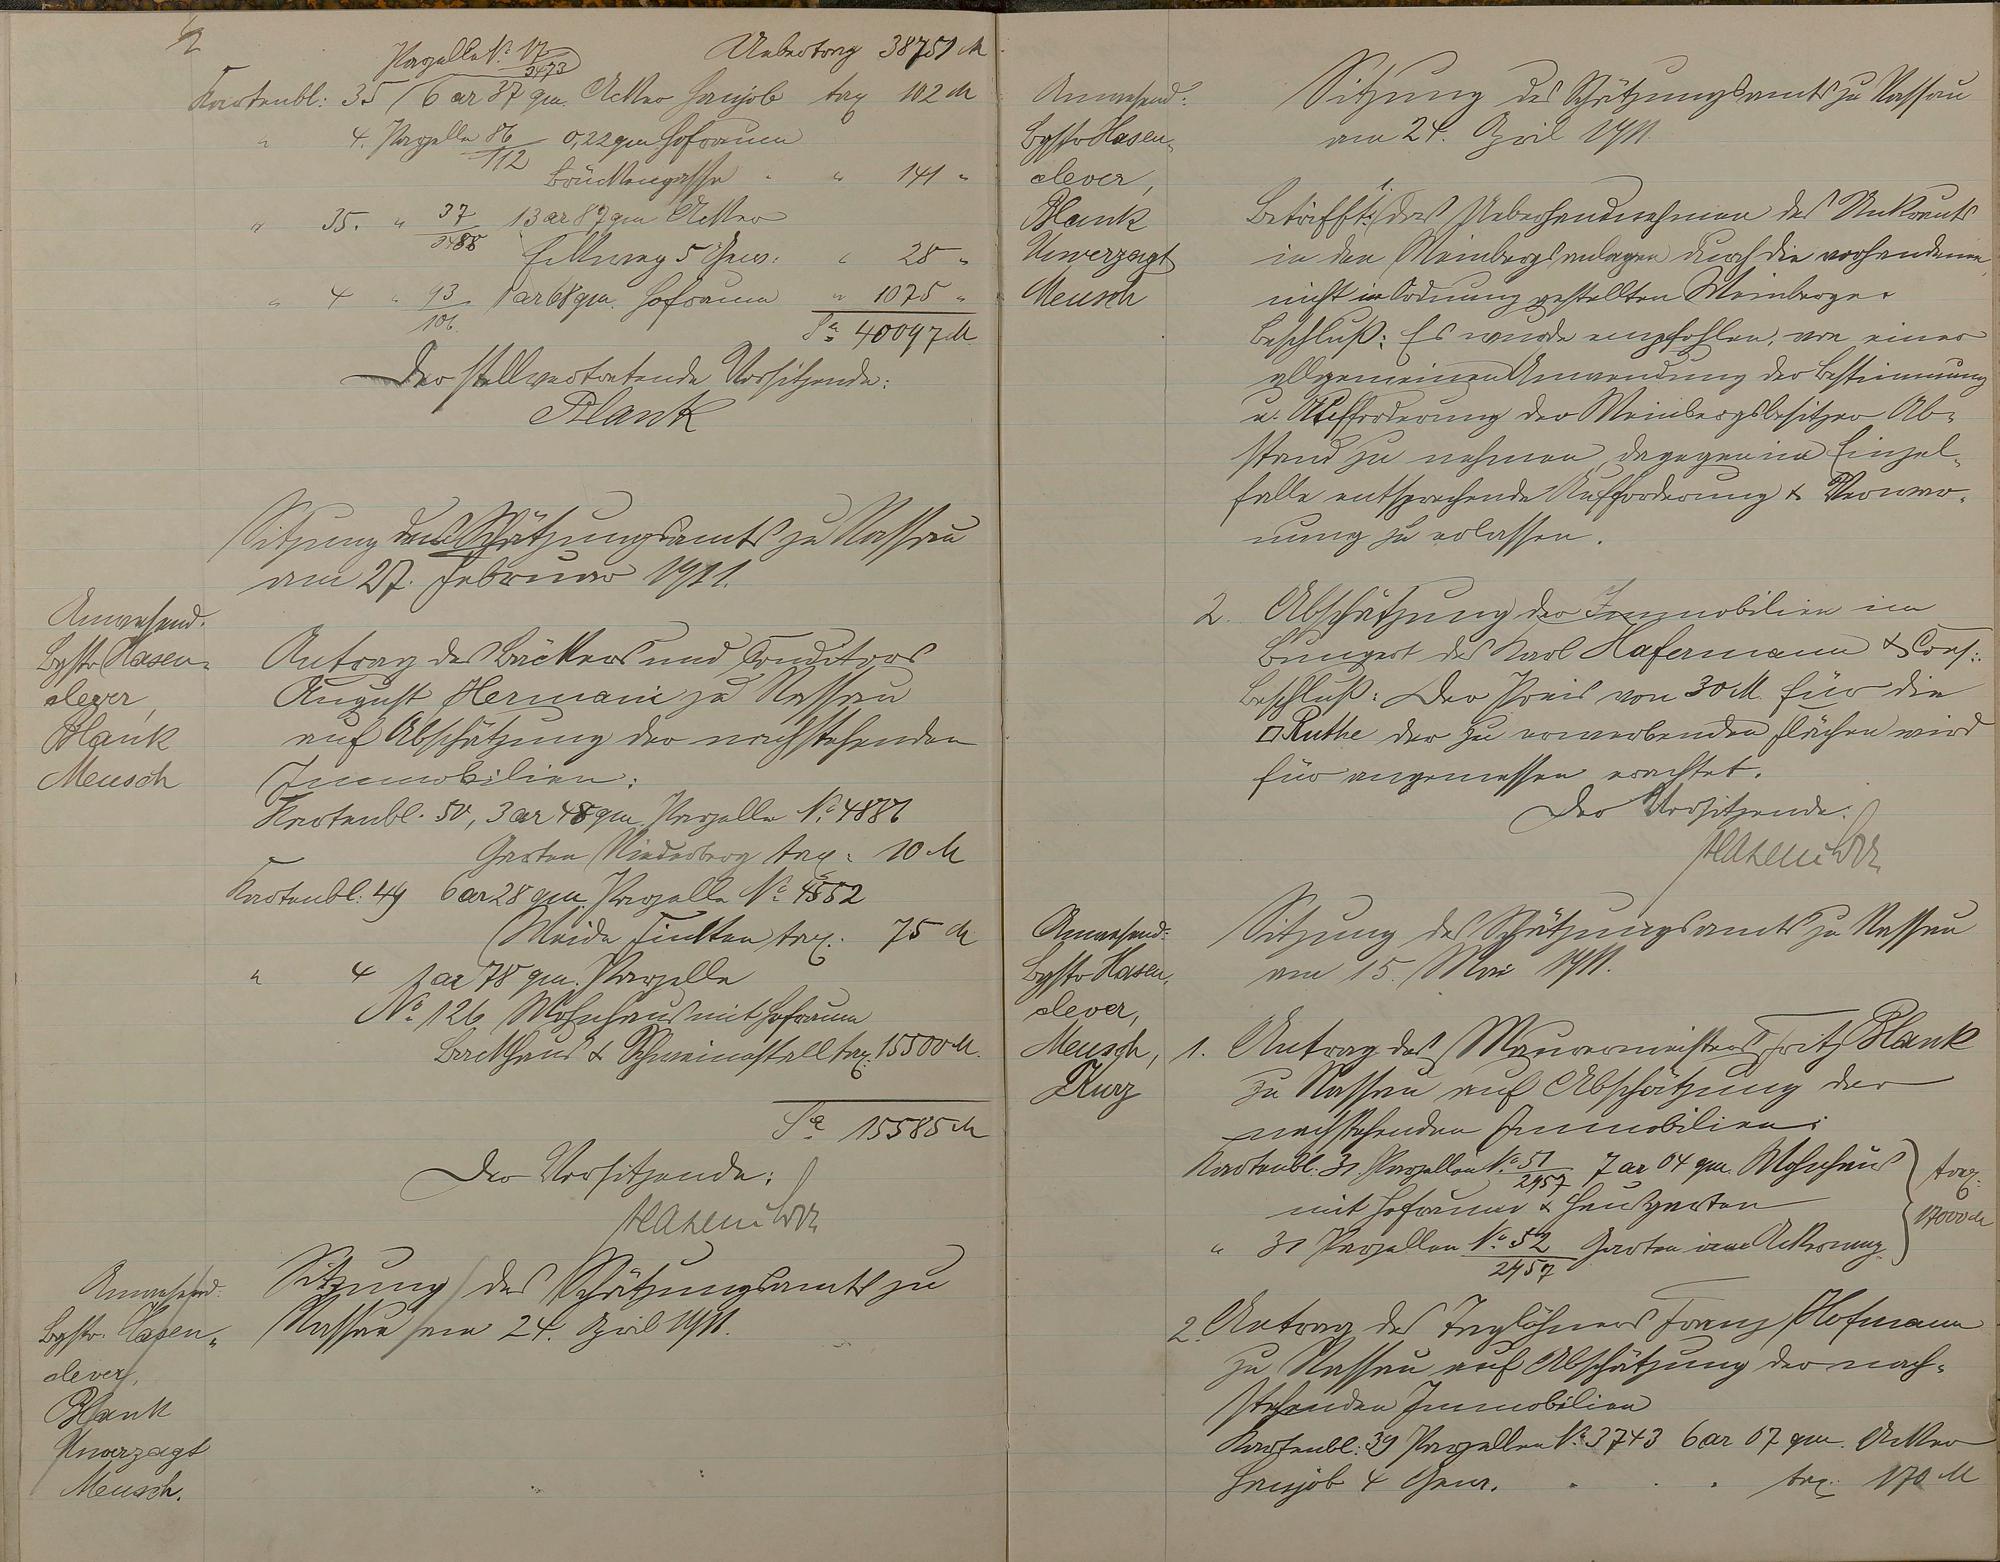 Parzelle No. 12/2473 Uebertrag 38751 M
Kartenbl: 35 6 ar 87 qm. Acker tax 102 M
" 4. Parzelle 86/112 0,22 qm Hofraum
Brückengasse " " 141 "
" 35. " 37/2488 13 ar 87 qm Acker
5 Gew. " 25 "
" 4 " 93/106 1 ar 68 qm. Hofraum " 1075 "
Sa 40097 M
Der stellvertretende Vorsitzende:
Plank
Sitzung des Schätzungsamts zu Nassau
am 27. Februar 1911.
Anwesend.
Bgstr Hasen=
clever,
Plank
Meusch
Antrag des Bäckers und Conditors
August Hermani zu Nassau
auf Abschätzung der nachstehenden
Immobilien:
Kartenbl. 50, 3 ar 48 qm Parzelle No. 4886
Garten Niederberg tax: 10 M
Kartenbl: 49 6 ar 28 qm. Parzelle No. 4552
Weide tax: 75 M
" 4 1 ar 78 qm. Parzelle
No. 126 Wohnhaus mit Hofraum
Backhaus & Schweinestall tax: 15500 M.
Sa 15585 M
Der Vorsitzende:
Hasenclever
Anwesend:
Bgstr. Hasen=
clever,
Plank
Unverzagt
Meusch.
Sitzung des Schätzungsamts zu
Nassau am 24. April 1911.
Anwesend:
Bgstr Hasen=
clever,
Plank
Unverzagt
Meusch
Sitzung des Schätzungsamts zu Nassau
am 24. April 1911.
Betrifft: 1. das Ueberhandnehmen des Unkrauts
in den Weinbergsanlagen durch die vorhandenen,
nicht in Ordnung gestellten Weinberge.
Beschluß: Es wurde empfohlen, von einer
allgemeinen Anwendung der Bestimmung
u. Aufforderung der Weinbergsbesitzer Ab=
stand zu nehmen, dagegen im Einzel=
falle entsprechende Aufforderung & Verwar=
nung zu erlassen.
2. Abschätzung der Immobilien im
Bungert des Karl Hafermann & Cons:.
Beschluß: Der Preis von 30 M. für die
□Ruthe der zu erwerbenden Flächen wird
für angemessen erachtet.
Der Vorsitzende:
Hasenclever
Anwesend:
Bgstr Hasen=
clever,
Meusch,
Kurz
Sitzung des Schätzungsamts zu Nassau
am 15. Mai 1911.
1. Antrag des Maurermeisters Fritz Plank
zu Nassau auf Abschätzung der
nachstehenden Immobilien:
Kartenbl. 31 Parzellen No. 51/2457 7 ar 04 qm. Wohnhaus
mit Hofraum & Hausgarten
" 31 Parzellen No. 52/2457 Garten
tax: 17000 M
2. Antrag des Taglöhners Franz Hofmann
zu Nassau auf Abschätzung der nach=
stehenden Immobilien
Kartenbl: 39 Parzellen No. 3743 6 ar 07 qm. Acker
4 Gew. tax: 170 M